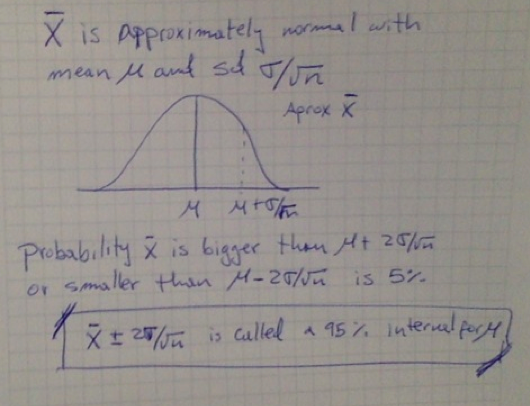 X̄ is Approximately normal with
mean μ and sd σ/√n
Aprox X̄
μ μ+σ/√n
Probability x̄ is bigger than μ+ 2σ/√n
or smaller than μ-2σ/√n is 5%
X̄ ± 2σ/√n is called a 95% interval for μ